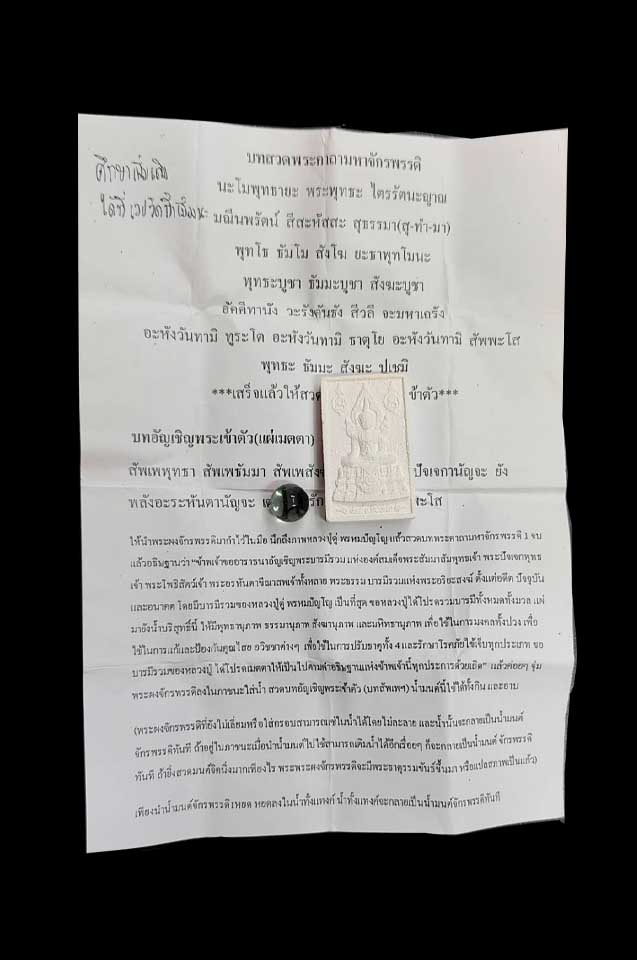 ศึกษาเพิ่มเติม
ได้ที่
บทสวดพระคาถามหาจักรพรรดิ
นะโมพุทธายะ พระพุทธะ ไตรรัตนะญาณ
มณีนพรัตน์ สีสะหัสสะ สุธรรมา(สุ-ทำ-มา)
พุทโธ ธัมโม สังโฆ ยะธาพุทโมนะ
พุทธะบูชา ธัมมะบูชา สังฆะบูชา
อัคคีทานัง วะรังคันธัง สีวลี จะมหาเถรัง
อะหังวันทามิ ทูระโต อะหังวันทามิ ธาตุโย อะหังวันทามิ สัพพะโส
พุทธะ ธัมมะ สังฆะ ปูเชมิ
***เสร็จแล้วให้สวด ข้าตัว***
บทอัญเชิญพระเข้าตัว(แผ่เมตตา)
สัพเพพุทธา สัพเพธัมมา สัพเพสัง ปัจเจกานัญจะ ยัง
พลังอะระหันตานัญจะ เต รัก ะโส
ให้นำพระผงจักรพรรดิมากำไว้ในมือ นึกถึงภาพหลวงปู่ดู่ พรหมปัญโญ แล้วสวดบทพระคาถามหาจักรพรรดิ 1 จบ
แล้วอธิษฐานว่า "ข้าพเจ้าขออาราธนาอัญเชิญพระบารมีรวม แห่งองค์สมเด็จพระสัมมาสัมพุทธเจ้า พระปัจเจกพุทธ
เจ้า พระโพธิสัตว์เจ้า พระอรหันตาขีณาสพเจ้าทั้งหลาย พระธรรม บารมีรวมแห่งพระอริยะสงฆ์ ตั้งแต่อดีต ปัจจุบัน
และอนาคต โดยมีบารมีรวมของหลวงปู่ดู่ พรหมปัญโญ เป็นที่สุด ขอหลวงปู่ได้โปรดรวมบารมีทั้งหมดทั้งมวล แผ่
มายังน้ำบริสุทธิ์นี้ ให้มีพุทธานุภาพ ธรรมานุภาพ สังฆานุภาพ และมหิทธานุภาพ เพื่อใช้ในการมงคลทั้งปวง เพื่อ
ใช้ในการแก้และป้องกันคุณไสย อวิชชาต่างๆ เพื่อใช้ในการปรับธาตุทั้ง 4 และรักษาโรคภัยไข้เจ็บทุกประเภท ขอ
บารมีรวมของหลวงปู่ ได้โปรดเมตตาให้เป็นไปตามคำอธิษฐานแห่งข้าพเจ้านี้ทุกประการด้วยเถิด" แล้วค่อยๆ จุ่ม
พระผงจักรพรรดิลงในภาชนะใส่น้ำ สวดบทอัญเชิญพระเข้าตัว (บทสัพเพฯ) น้ำมนต์นี้ใช้ได้ทั้งกิน และอาบ
(พระผงจักรพรรดิที่ยังไม่เลี่ยมหรือใส่กรอบสามารถแช่ในน้ำได้โดยไม่ละลาย และน้ำนั้นจะกลายเป็นน้ำมนต์
จักรพรรดิทันที ถ้าอยู่ในภาชนะเมื่อนำน้ำมนต์ไปใช้สามารถเติมน้ำได้อีกเรื่อยๆ ก็จะกลายเป็นน้ำมนต์ จักรพรรดิ
ทันที ถ้ายิ่งสวดมนต์จิตนิ่งมากเพียงไร พระพระผงจักรพรรดิจะมีพระธาตุธรรมขันธ์ขึ้นมา หรือแปลสภาพเป็นแก้ว)
เพียงนำน้ำมนต์จักรพรรดิ 1หยด หยดลงในน้ำทั้งแทงค์ น้ำทั้งแทงค์จะกลายเป็นน้ำมนต์จักรพรรดิทันที